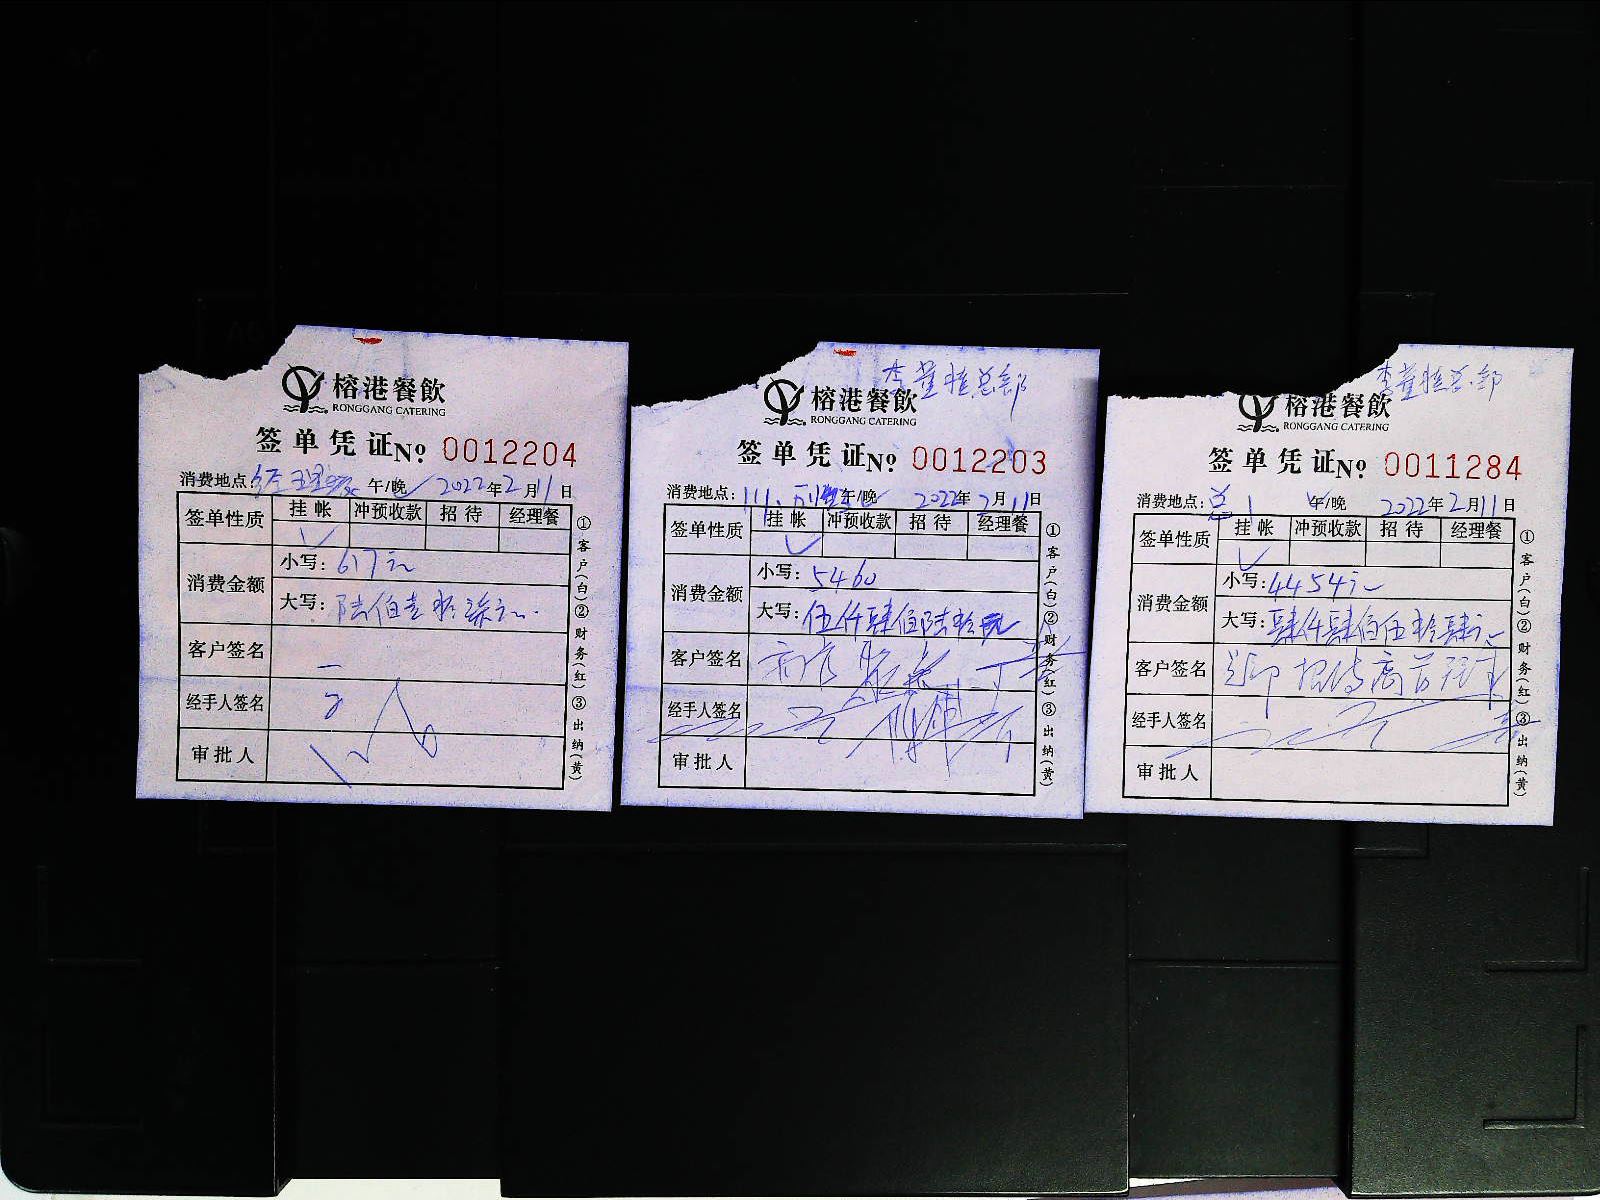 榕港餐飲
RONGGANG CATERING
签单凭证 No 0012204
消费地点: 经理餐 午/晚 2022年2月11日
签单性质 挂帐 冲预收款 招待 经理餐
消费金额
小写: 617元
大写: 陆佰壹拾柒元
客户签名
经手人签名
审批人
①客户(白)②财务(红)③出纳(黄)
李董批总部
榕港餐飲
RONGGANG CATERING
签单凭证 No 0012203
消费地点: 午/晚 2022年2月11日
签单性质 挂帐 冲预收款 招待 经理餐
消费金额
小写: 5460
大写: 伍仟肆佰陆拾元
客户签名
经手人签名
审批人
①客户(白)②财务(红)③出纳(黄)
李董批总部
榕港餐飲
RONGGANG CATERING
签单凭证 No 0011284
消费地点: 总1 午/晚 2022年2月11日
签单性质 挂帐 冲预收款 招待 经理餐
消费金额
小写: 4454元
大写: 肆仟肆佰伍拾肆元
客户签名
经手人签名
审批人
①客户(白)②财务(红)③出纳(黄)